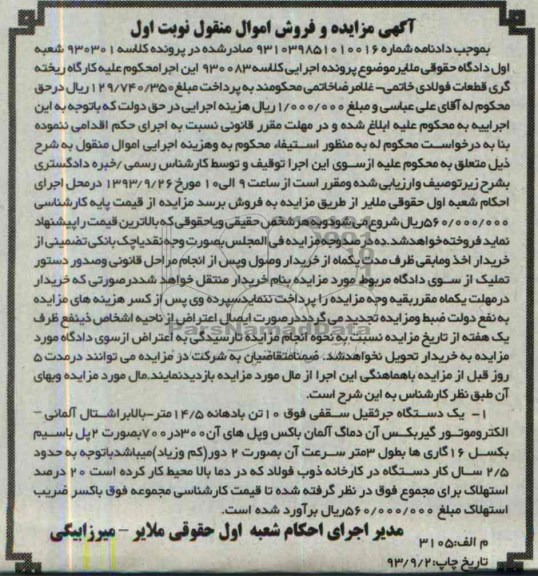 آگهی مزایده و فروش اموال منقول نوبت اول
بموجب دادنامه شماره ۹۳۱۰۳۹۸۵۱۰۱۰۰۱۶ صادرشده در پرونده کلاسه ۹۳۰۳۰۱ شعبه
اول دادگاه حقوقی ملایر موضوع پرونده اجرایی کلاسه ۹۳۰۰۸۳ این اجرا محکوم علیه کارگاه ریخته
گری قطعات فولادی خاتمی- غلامرضا خاتمی محکومند به پرداخت مبلغ ۱۲۹/۷۴۰/۳۵۰ ریال درحق
محکوم له آقای علی عباسی و مبلغ ۱/۰۰۰/۰۰۰ ریال هزینه اجرایی در حق دولت که باتوجه به این
اجراییه به محکوم علیه ابلاغ شده و در مهلت مقرر قانونی نسبت به اجرای حکم اقدامی ننموده
بنا به درخواست محکوم له به منظور استیفاء محکوم به وهزینه اجرایی اموال منقول به شرح
ذیل متعلق به محکوم علیه ازسوی این اجرا توقیف و توسط کارشناس رسمی /خبره دادگستری
بشرح زیر توصیف وارزیابی شده ومقرر است از ساعت ۹ الی۱۰ مورخ ۱۳۹۳/۹/۲۶ درمحل اجرای
احکام شعبه اول حقوقی ملایر از طریق مزایده به فروش برسد مزایده از قیمت پایه کارشناسی
۵۶۰/۰۰۰/۰۰۰ریال شروع می شودوبه هرشخص حقیقی ویاحقوقی که بالاترین قیمت راپیشنهاد
نماید فروخته خواهدشد.ده درصدوجه مزایده فی المجلس بصورت وجه نقدیاچک بانکی تضمینی از
خریدار اخذ ومابقی ظرف مدت یکماه از خریدار وصول وپس از انجام مراحل قانونی وصدور دستور
تملیک از سوی دادگاه مربوط مورد مزایده بنام خریدار منتقل خواهد شددرصورتی که خریدار
درمهلت یکماه مقرربقیه وجه مزایده را پرداخت ننمایدسپرده وی پس از کسر هزینه های مزایده
به نفع دولت ضبط ومزایده تجدید می گردددرصورت ایصال اعتراض از ناحیه اشخاص ذینفع ظرف
یک هفته از تاریخ مزایده نسبت به نحوه انجام مزایده تارسیدگی به اعتراض ازسوی دادگاه مورد
مزایده به خریدار تحویل نخواهدشد. ضمنامتقاضیان به شرکت در مزایده می توانند درمدت ۵
روز قبل از مزایده باهماهنگی این اجرا از مال مورد مزایده بازدیدنمایند.مال مورد مزایده وبهای
آن طبق نظر کارشناس به این شرح است.
۱- یک دستگاه جرثقیل سقفی فوق ۱۰تن بادهانه ۱۴/۵متر-بالابراشتال آلمانی-
الکتروموتور گیربکس آن دماگ آلمان باکس وپل های آن۳۰۰در۷۰۰بصورت ۲پل باسیم
بکسل ۱۶گاری ها بطول ۳متر سرعت آن بصورت ۲ دور(کم وزیاد)میباشدباتوجه به حدود
۲/۵ سال کار دستگاه در کارخانه ذوب فولاد که در دما بالا محیط کار کرده است ۲۰ درصد
استهلاک برای مجموع فوق در نظر گرفته شده تا قیمت کارشناسی مجموعه فوق باکسر ضریب
استهلاک مبلغ ۵۶۰/۰۰۰/۰۰۰ریال برآورد شده است.
مدیر اجرای احکام شعبه اول حقوقی ملایر - میرزابیگی
م الف:۳۱۰۵
تاریخ چاپ:۹۳/۹/۲
ParsNamadData